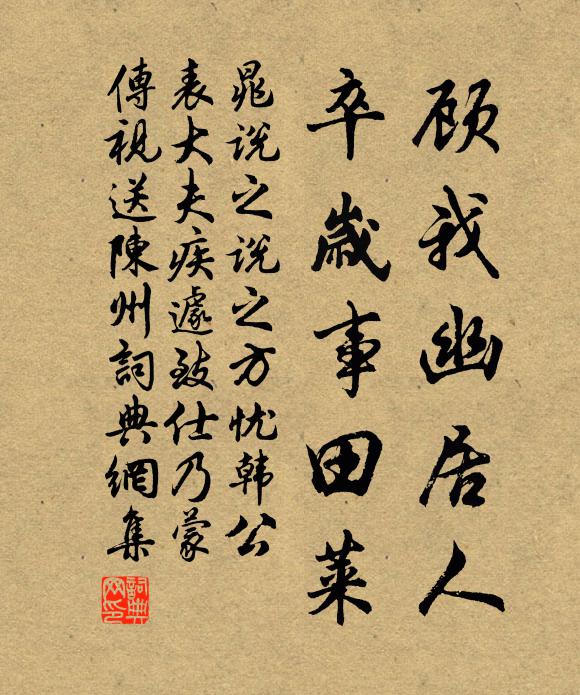 顾我幽居人
卒歲事田萊
晁說之說之方忧韩公
表大夫疾遽致仕乃蒙
傳視送陳州詞典網集
詞典
网印